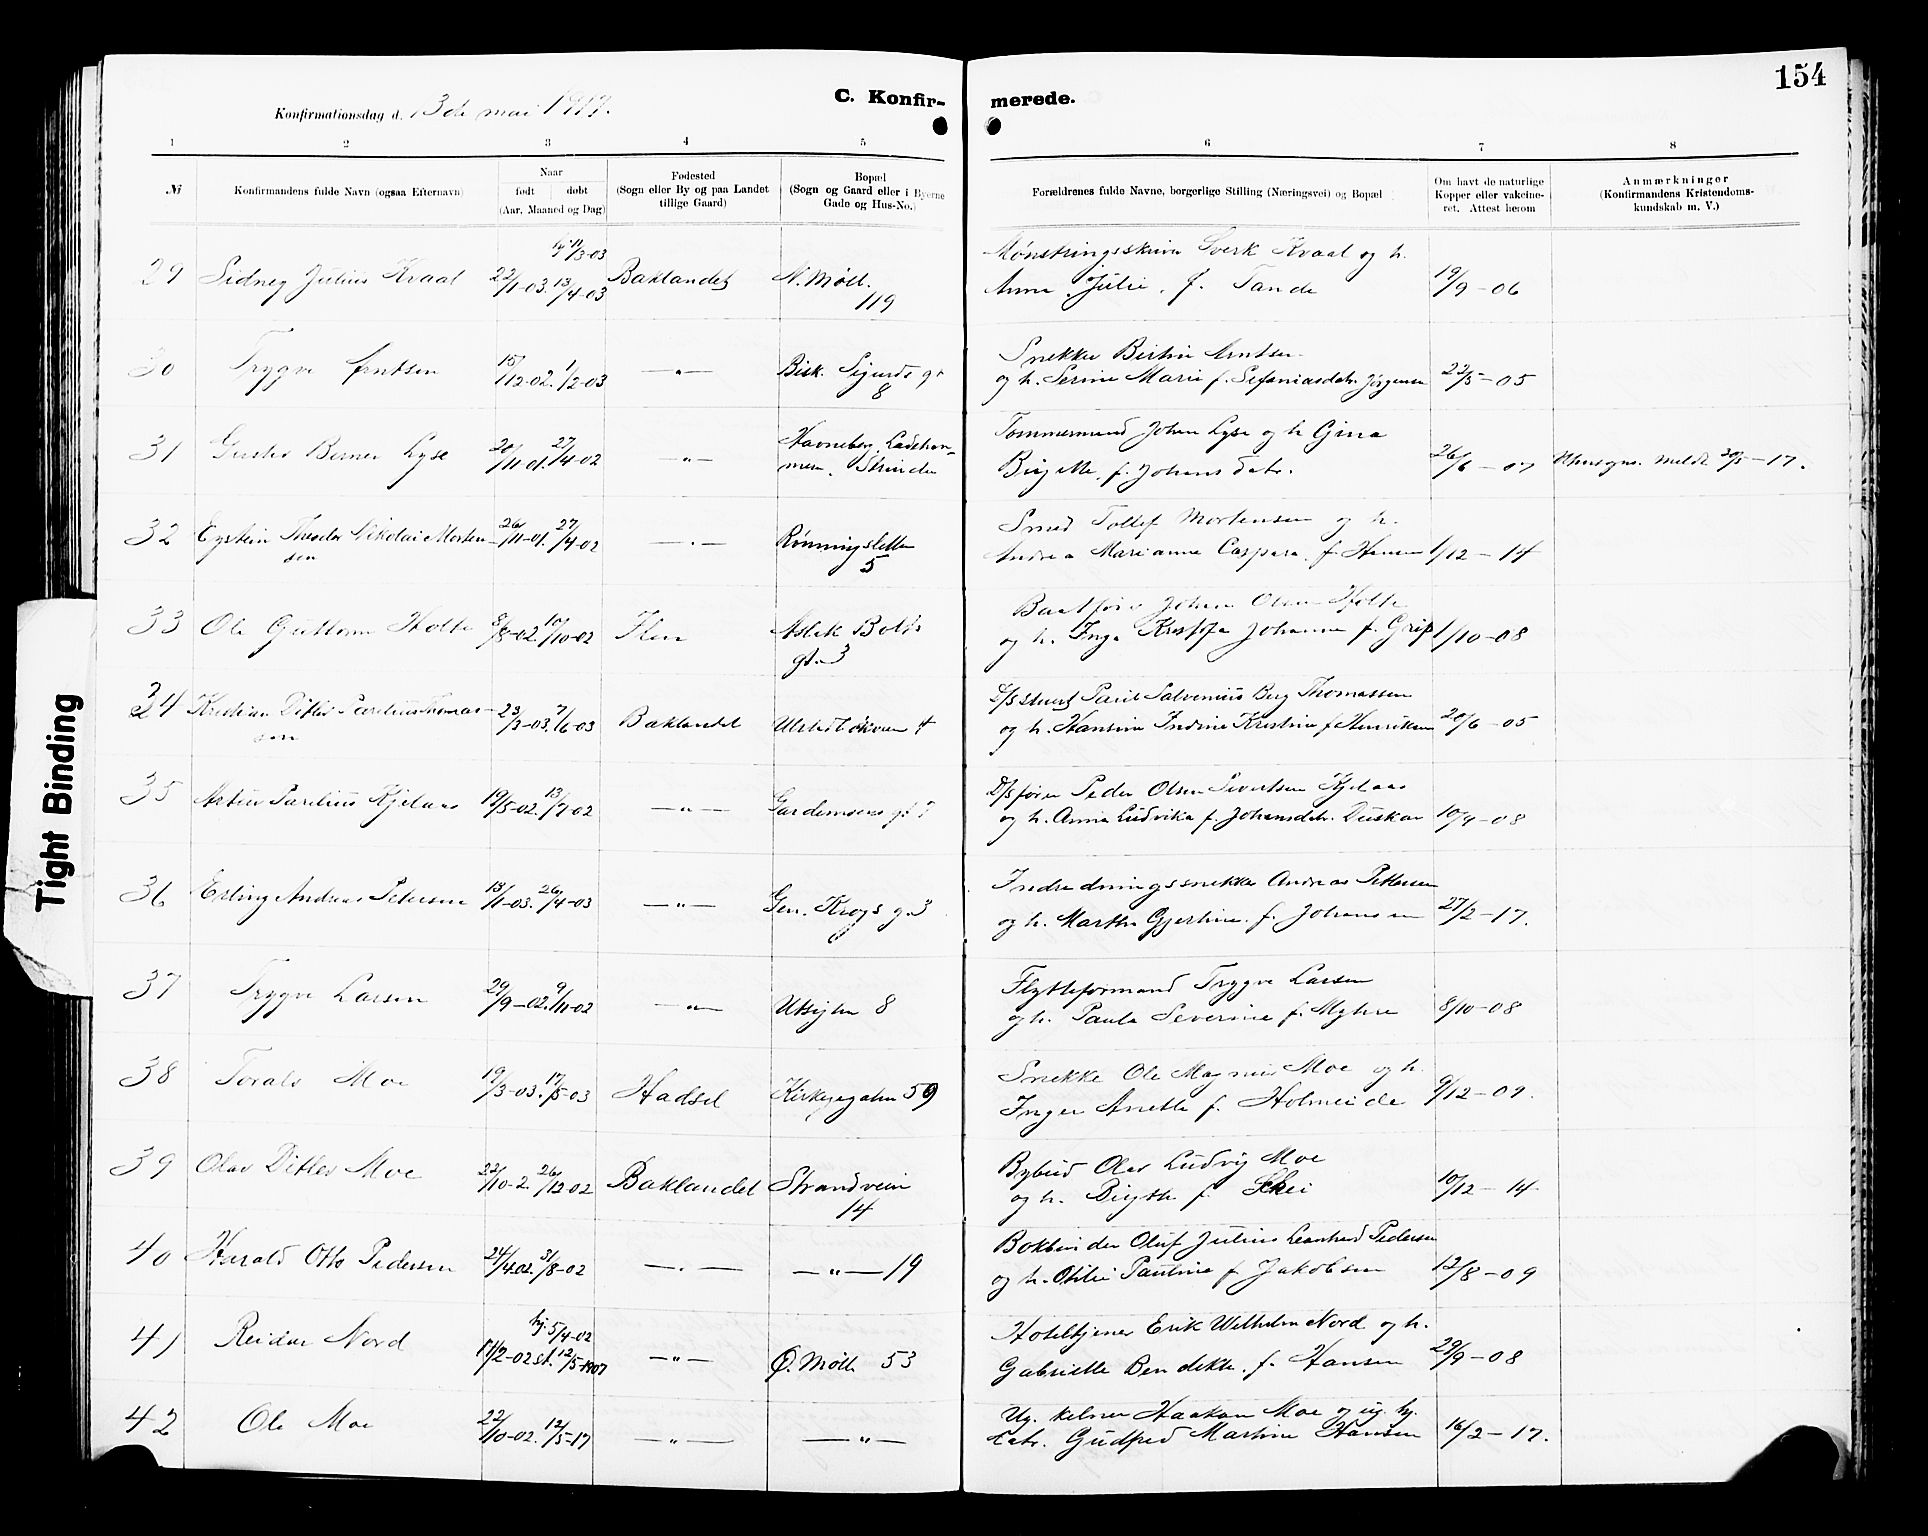 154
C. Konfir- merede.
Konfirmationsdag d. 13de mai 1917.
1 2 3 4 5 6 7 8
№ Konfirmandens fulde Navn (ogsaa Efternavn)
Naar
født døbt
(Aar, Maaned og Dag)
Fødested
(Sogn eller By og paa Landet
tillige Gaard)
Bopæl
(Sogn og Gaard eller i Byerne
Gade og Hus-No.)
Forældrenes fulde Navne, borgerlige Stilling (Næringsvei) og Bopæl
Om havt de naturlige
Kopper eller vakcine-
ret. Attest herom
Anmærkninger
(Konfirmandens Kristendoms-
kundskab m. V.)
hj. 11/3-03
29 Sidney Julius Kvaal 22/1-03. 13/4-03 Baklandet N. Møll. 119
Mønstringsskriver Sverk Kvaal og h.
Anna Julie, f. Tande 19/9-06
30 Trygve Arntsen 15/12-02. 1/2-03 —"— Bisk. Sigurds gt 8
Snekker Bertin Arntsen
og h. Serine Marie f. Sefaniasdatr. Jørgensen 22/5-05
31 Gustav Berner Lyse 20/11-01. 27/4-02 —"— Havneborg, Ladeham-
meren, Strinden
Tømmermand Johan Lyse og h. Gina
Birgitte, f. Johansdatr. 26/6-07 Utmeldt 20/5-17.
32 Eystein Theodor Nikolai Morten-
sen 26/11-01. 27/4-02 —"— Rønningsletten 5
Smed Tollef Mortensen og h.
Andrea Marianne Caspara, f. Hansen 1/12-14
33 Ole Guttorm Holte 8/8-02. 10/10-02 Ilen Aslak Bolts
gt. 3
Baatfører Johan Olsen Holte
og h. Inga Kristofa Johanne f. Grip 1/10-08
34 Kristian Ditlev Parelius Thomas-
sen 23/3-03. 7/6-03 Baklandet Ulstadløkveien 4
D/S stuert Paul Salvenius Berg Thomassen
og h. Hansine Indine Kristine f. Henriksen 20/6-05
35 Astin Parelius Kjelaas 19/5-02. 13/7-02 —"— Gardemoens gt 7
D/S fører Peder Olsen Sivertsen Kjelaas
og h. Anna Ludvika f. Johansdatr. Duskas 10/9-08
36 Erling Andreas Petersen 13/1-03. 26/4-03 —"— Gen. Krogs g. 3
Indredningssnekker Andreas Pettersen
og h. Martha Gjertine f. Johansen 27/2-17.
37 Trygve Larsen 29/9-02. 9/11-02 —"— Utsigten 8
Flytteformand Trygve Larsen
og h. Paula Severine f. Myhre 8/10-08
38 Torals Moe 19/3-03. 17/5-03 Hadsel Kirkegaten 59
Snekker Ole Magnus Moe og h.
Inger Anette f. Holmeide 9/12-09.
39 Olav Ditlev Moe 22/10-2. 26/12-02 Baklandet Strandveien
14
Bybud Olav Ludvig Moe
og h. Birgitte f. Skei 10/12-14
40 Harald Otto Pedersen 24/4.02. 31/8-02 —"— —"— 19
Bokbinder Oluf Julius Leonhard Pedersen
og h. Otilie Pauline f. Jakobsen 12/8-09
hj. 5/4-02
41 Reidar Nord 17/2-02 st. 12/5-1907 —"— Ø. Møll. 53
Hoteltjener Erik Wilhelm Nord og h.
Gabrielle Bendikte, f. Hansen 29/9-08
42 Ole Moe 22/10-02. 12/5-17 —"— —"—
Ug. kelner Haakon Moe og ug. hj.
datr. Gudfred Martine Hansen 16/2-17.
Tight Binding